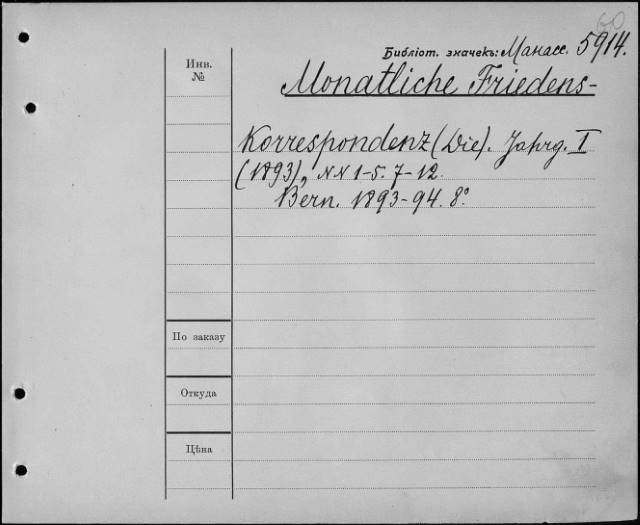 60
Библіот. значекъ: Манасс. 5914.
Инв.
№
Monatliche Friedens-
Korrespondenz (Die). Jahrg. I
(1893), NN 1-5. 7-12.
Bern. 1893-94. 8°
По заказу
Откуда
Цѣна